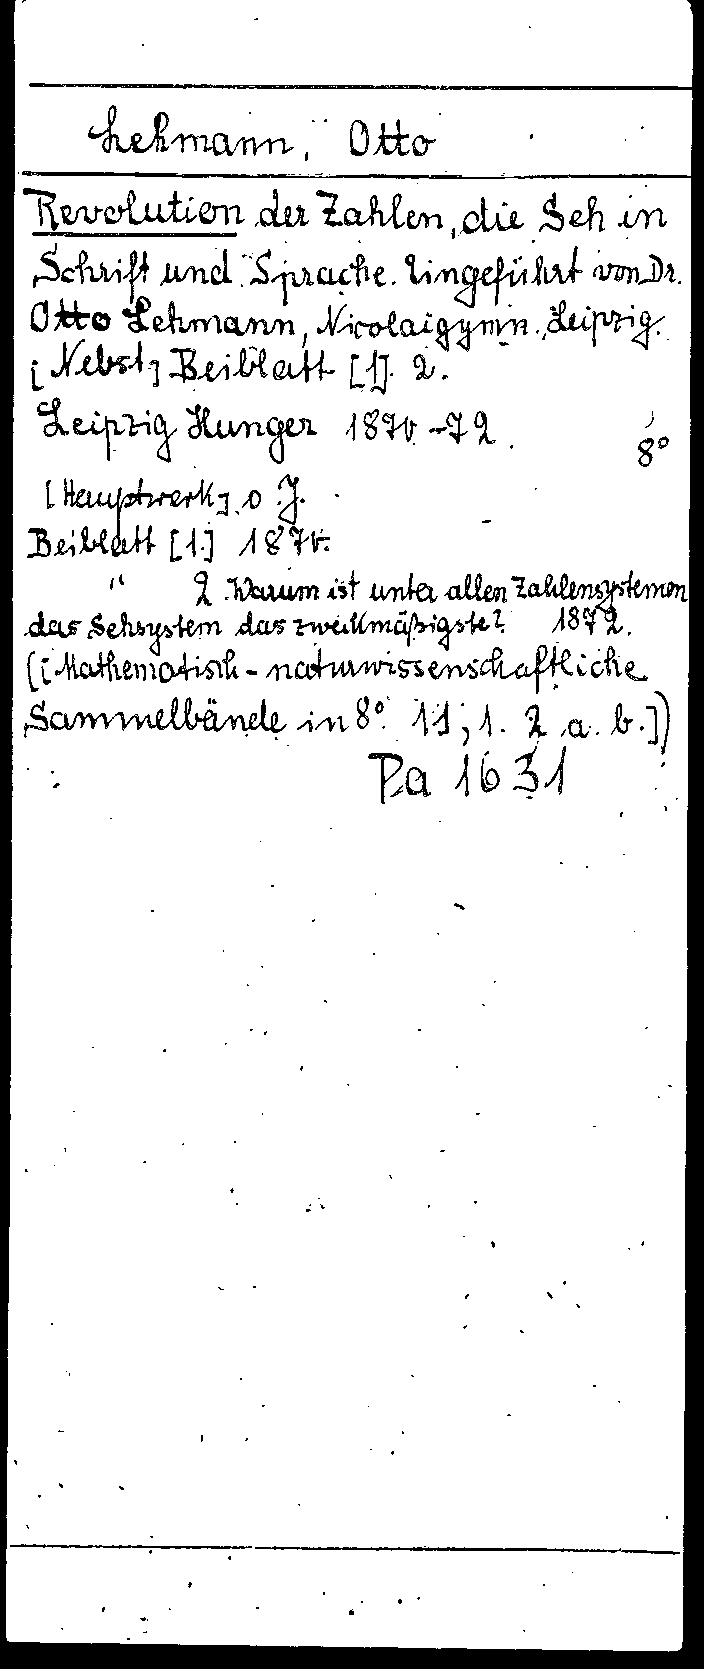 Lehmann, Otto
Revolution der Zahlen, die Seh in
Schrift und Sprache. Eingeführt von Dr.
Otto Lehmann, Nicolaigymn. Leipzig.
[Nebst] Beiblatt [1]. 2.
Leipzig Hunger 1870-72. 8°
[Hauptwerk] o. J.
Beiblatt [1.] 1870.
" 2. Warum ist unter allen Zahlensystemen
das Sehsystem das zweckmäßigste? 1872.
([Mathematisch-naturwissenschaftliche
Sammelbände in 8°. 11, 1. 2 a. b.])
Pa 1631